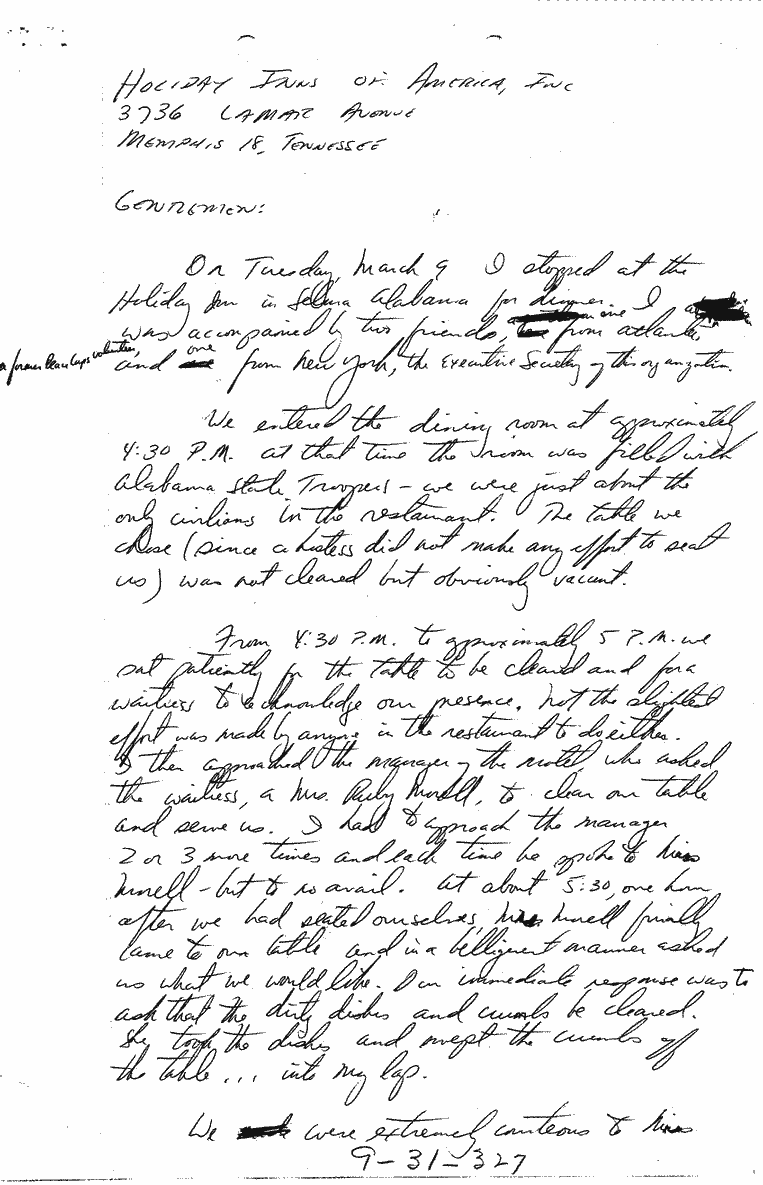 HOLIDAY INNS OF AMERICA, INC
3736 LAMAR AVENUE
MEMPHIS 18, TENNESSEE
GENTLEMEN:
On Tuesday, March 9 I stopped at the
Holiday Inn in Selma Alabama for dinner. I
was accompanied by two friends, one from Atlanta,
a former Peace Corps volunteer,
and one from New York, the Executive Secretary of this organization.
We entered the dining room at approximately
4:30 P.M. at that time the room was filled with
Alabama State Troopers - we were just about the
only civilians in the restaurant. The table we
chose (since a hostess did not make any effort to seat
us) was not cleared but obviously vacant.
From 4:30 P.M. to approximately 5 P.M. we
sat patiently for the table to be cleared and for a
waitress to acknowledge our presence. Not the slightest
effort was made by anyone in the restaurant to do either.
I then approached the manager of the motel, who asked
the waitress, a Mrs. Ruby Morell, to clear our table
and serve us. I had to approach the manager
2 or 3 more times and each time he spoke to Miss
Morell - but to no avail. At about 5:30, one hour
after we had seated ourselves, Miss Morell finally
came to our table and in a belligerent manner asked
us what we would like. Our immediate response was to
ask that the dirty dishes and crumbs be cleared.
She took the dishes and swept the crumbs off
the table ... into my lap.
We were extremely courteous to Miss
9-31-327